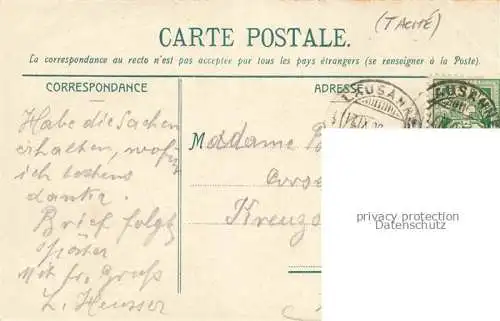 (TACHÉ)
CARTE POSTALE.
La correspondance au recto n'est pas acceptée par tous les pays étrangers (se renseigner à la Poste).
CORRESPONDANCE
ADRESSE
LAUSANNE
LAUSANNE
Habe die Sachen
erhalten, wofür
ich bestens
danke.
Brief folgt
später
Mit fr. Gruß
L. Heusser
Madame
Kreuz
privacy protection
Datenschutz